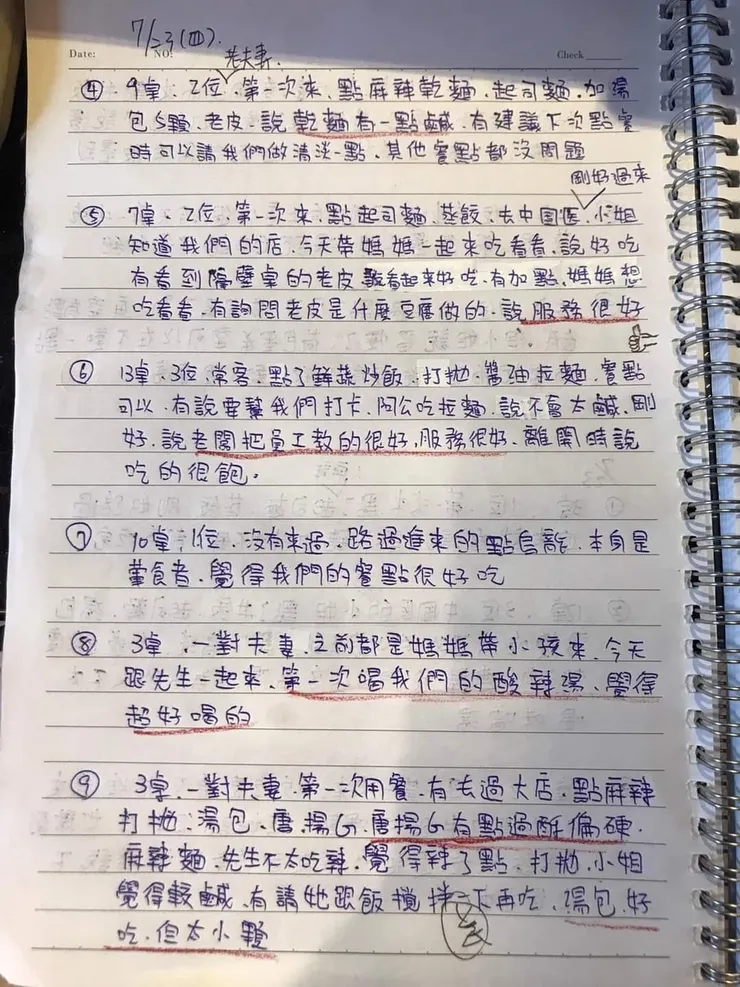 7/23(四).
Date: NO: Check
老夫妻.
④ 9桌、2位、第一次來、點麻辣乾麵、起司麵、加湯
包5顆、老皮、說乾麵有一點鹹、有建議下次點餐
時可以請我們做清淡一點、其他餐點都沒問題
剛好過來
⑤ 7桌、2位、第一次來、點起司麵、蒸餃、去中国医、小姐
知道我們的店、今天帶媽媽一起來吃看看、說好吃
有看到隔壁桌的老皮 看起來好吃、有加點、媽媽想
吃看看、有詢問老皮是什麼豆腐做的、說服務很好
⑥ 13桌、3位、常客、點了鮮蔬炒飯、打拋、醬油拉麵、餐點
可以、有說要幫我們打卡、阿公吃拉麵、說不會太鹹、剛
好、說老闆把員工教的很好、服務很好、離開時說
吃的很飽。
⑦ 10桌、1位、沒有來過、路過進來的點烏龍、本身是
葷食者、覺得我們的餐點很好吃
⑧ 3桌、一對夫妻、之前都是媽媽帶小孩來、今天
跟先生一起來、第一次喝我們的酸辣湯、覺得
超好喝的
⑨ 3桌、一對夫妻、第一次用餐、有去過大店、點麻辣
打拋、湯包、唐揚G、唐揚G有點過酥偏硬.
麻辣麵、先生不太吃辣、覺得辣了點、打拋、小姐
覺得較鹹、有請她跟飯攪拌一下再吃、湯包、好
吃、但太小顆